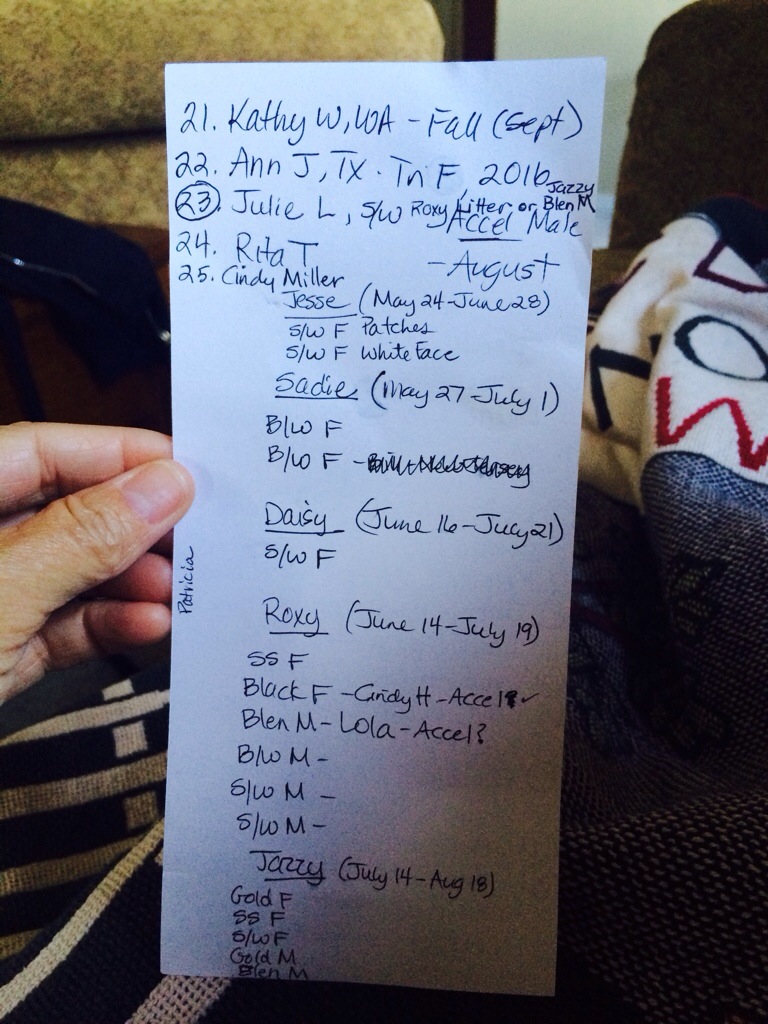 21. Kathy W, WA - Fall (Sept)
22. Ann J, TX. Tri F, 2016
23. Julie L, S/W Roxy Litter or Jazzy Blen M
Accel Male
24. Rita T - August
25. Cindy Miller
Jesse (May 24-June 28)
S/W F Patches
S/W F White Face
Sadie (May 27-July 1)
B/W F
B/W F -
Daisy (June 16-July 21)
S/W F
Patricia
Roxy (June 14-July 19)
SS F
Black F - Cindy H - Accel ✓
Blen M - Lola - Accel?
B/W M -
S/W M -
S/W M -
Jazzy (July 14-Aug 18)
Gold F
SS F
S/W F
Gold M
Blen M
O
W